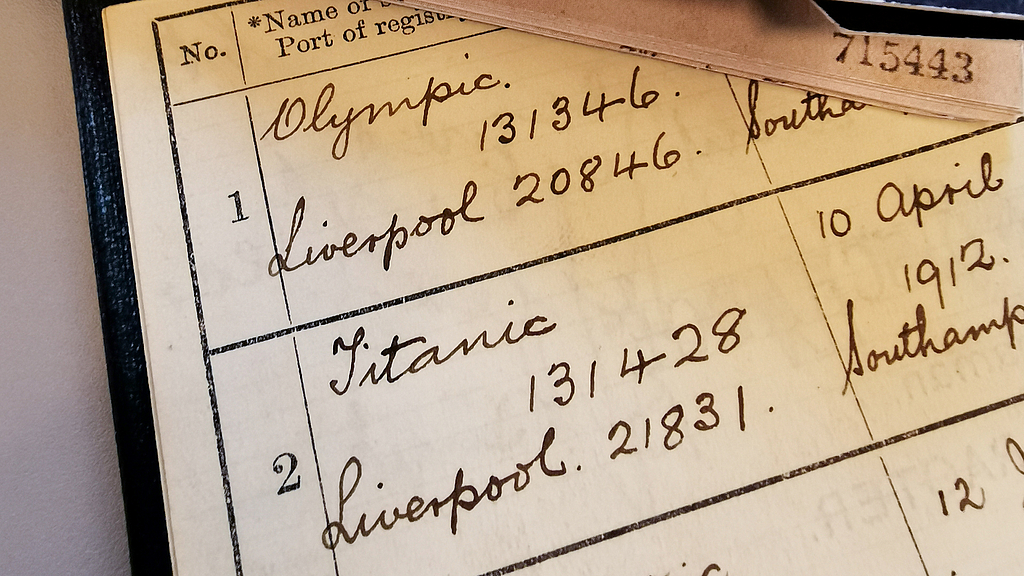 No.
*Name of
Port of regis
715443
1
Olympic.
131346.
Liverpool 20846.
Southa
2
Titanic
131428
Liverpool. 21831.
10 April
1912.
Southamp
12